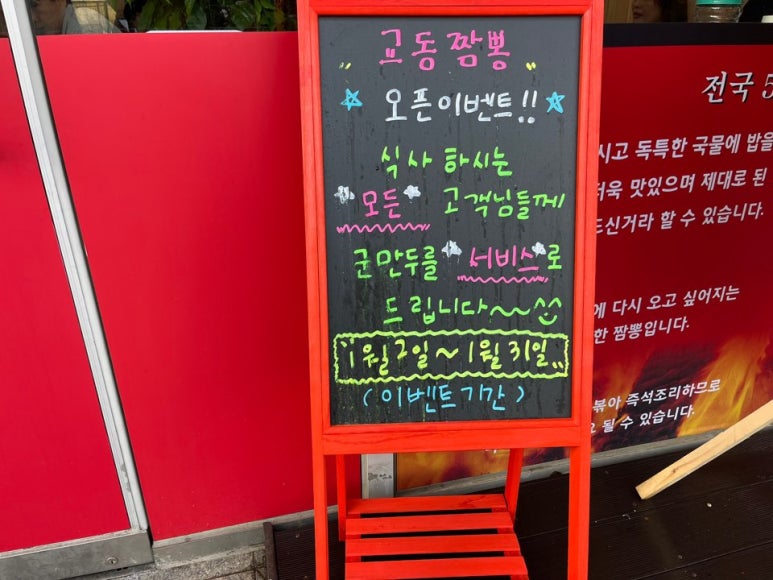 교동짬뽕
오픈이벤트!!
식사 하시는
모든 고객님들께
군만두를 서비스로
드립니다~~
1월2일~1월31일..
(이벤트기간)
전국 5
시고 독특한 국물에 밥을
더욱 맛있으며 제대로 된
드신거라 할 수 있습니다.
에 다시 오고 싶어지는
한 짬뽕입니다.
볶아 즉석조리하므로
될 수 있습니다.